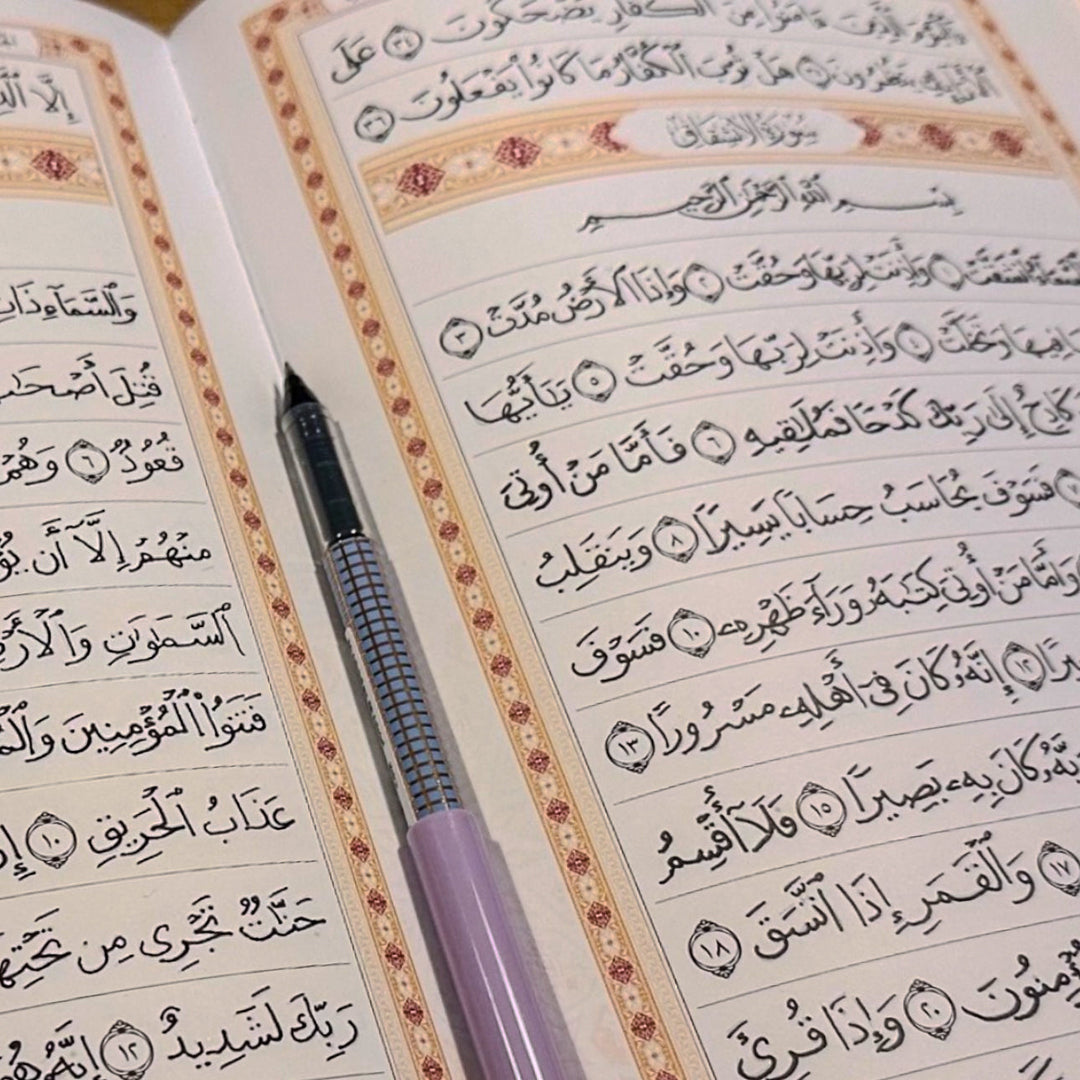 فَٱلۡيَوۡمَ ٱلَّذِينَ ءَامَنُواْ مِنَ ٱلۡكُفَّارِ يَضۡحَكُونَ ٣٤ عَلَى
ٱلۡأَرَآئِكِ يَنظُرُونَ ٣٥ هَلۡ ثُوِّبَ ٱلۡكُفَّارُ مَا كَانُواْ يَفۡعَلُونَ ٣٦
سُورَةُ الانشِقَاقِ
بِسۡمِ ٱللَّهِ ٱلرَّحۡمَٰنِ ٱلرَّحِيمِ
ٱلسَّمَآءُ ٱنشَقَّتۡ ١ وَأَذِنَتۡ لِرَبِّهَا وَحُقَّتۡ ٢ وَإِذَا ٱلۡأَرۡضُ مُدَّتۡ ٣
مَا فِيهَا وَتَخَلَّتۡ ٤ وَأَذِنَتۡ لِرَبِّهَا وَحُقَّتۡ ٥ يَٰٓأَيُّهَا
كَادِحٌ إِلَىٰ رَبِّكَ كَدۡحٗا فَمُلَٰقِيهِ ٦ فَأَمَّا مَنۡ أُوتِيَ
٧ فَسَوۡفَ يُحَاسَبُ حِسَابٗا يَسِيرٗا ٨ وَيَنقَلِبُ
وَأَمَّا مَنۡ أُوتِيَ كِتَٰبَهُۥ وَرَآءَ ظَهۡرِهِۦ ١٠ فَسَوۡفَ
١٢ إِنَّهُۥ كَانَ فِيٓ أَهۡلِهِۦ مَسۡرُورًا ١٣
كَانَ بِهِۦ بَصِيرٗا ١٥ فَلَآ أُقۡسِمُ
١٧ وَٱلۡقَمَرِ إِذَا ٱتَّسَقَ ١٨
٢٠ وَإِذَا قُرِئَ
إِلَّا
وَٱلسَّمَآءِ ذَاتِ
قُتِلَ أَصۡحَٰبُ
قُعُودٞ ٦ وَهُمۡ
مِنۡهُمۡ إِلَّآ أَن
ٱلسَّمَٰوَٰتِ وَٱلۡأَرۡضِ
فَتَنُواْ ٱلۡمُؤۡمِنِينَ
عَذَابُ ٱلۡحَرِيقِ ١٠
جَنَّٰتٞ تَجۡرِي مِن تَحۡتِهَا
رَبِّكَ لَشَدِيدٌ ١٢ إِنَّهُۥ هُوَ